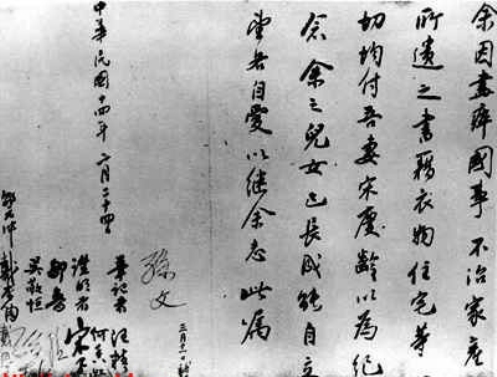 余因盡瘁國事不治家產
所遺之書籍衣物住宅等
切均付吾妻宋慶齡以為紀
念余之兒女已長成能自立
望各自愛以继余志此嘱
孫文
三月十一日
中華民國十四年二月二十四
筆記者 汪精
何香
證明者 宋子
鄒魯
吳敬恒
邵元冲
戴恩